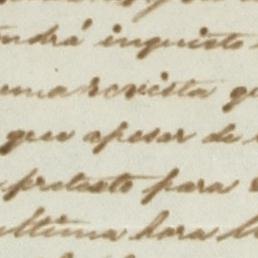 ndrá inquieto
una revista qu
que apesar de
pretesto para
ultima hora